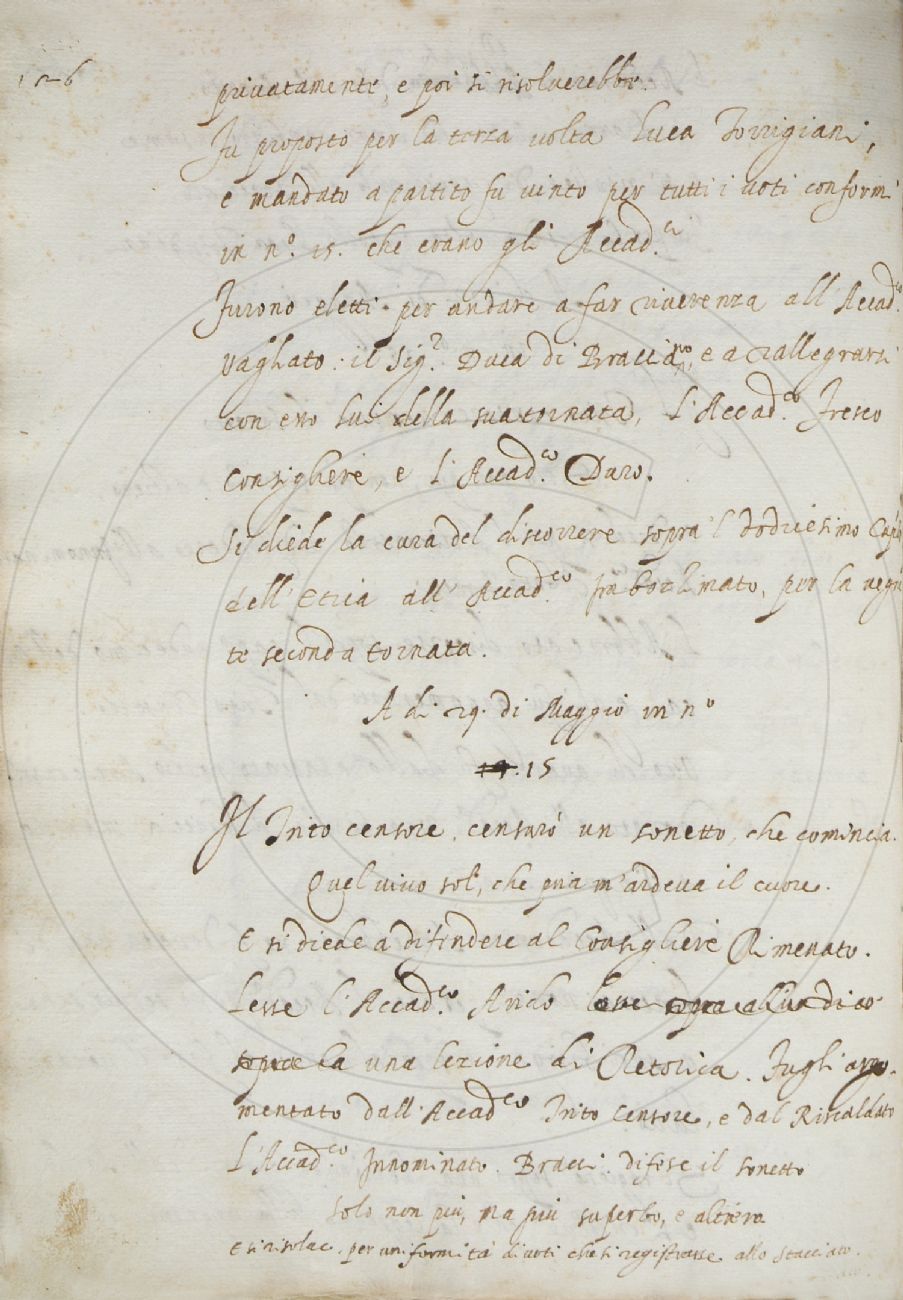 126
privatamente, e poi si risolverebbe.
Fu proposto per la terza volta Luca Torrigiani,
e mandato a partito fu vinto per tutti i voti conformi
in n.º 15. che erano gli Accad.ci
Furono eletti per andare a far riverenza all' Accad.co
Vagliato il Sig.r Duca di Bracciano, e a rallegrarsi
con esso lui della sua tornata, l'Accad.co Fresco
Consigliere, e l'Accad.co Duro.
Si diede la cura del discorrere sopra 'l dodicesimo Cap.
dell' Etica all' Accad.co per la vegn
te seconda tornata.
A dì 29. di Maggio in nº
14. 15
Il Trito censore, censurò un sonetto, che comincia.
Quel vivo sol, che pria m'ardeva il cuore.
E si diede a difendere al Consigliere Rimenato.
Lesse l'Accad.co Arido lesse sopra
sopra la una lezione di Retorica. Fugli argo-
mentato dall' Accad.co Trito Censore, e dal Riscaldato
L'Accad.co Innominato Bracci difese il sonetto
Solo non più, ma più superbo, e altero
E si risolvè per uniformità di voti che si registrasse allo stacciato.